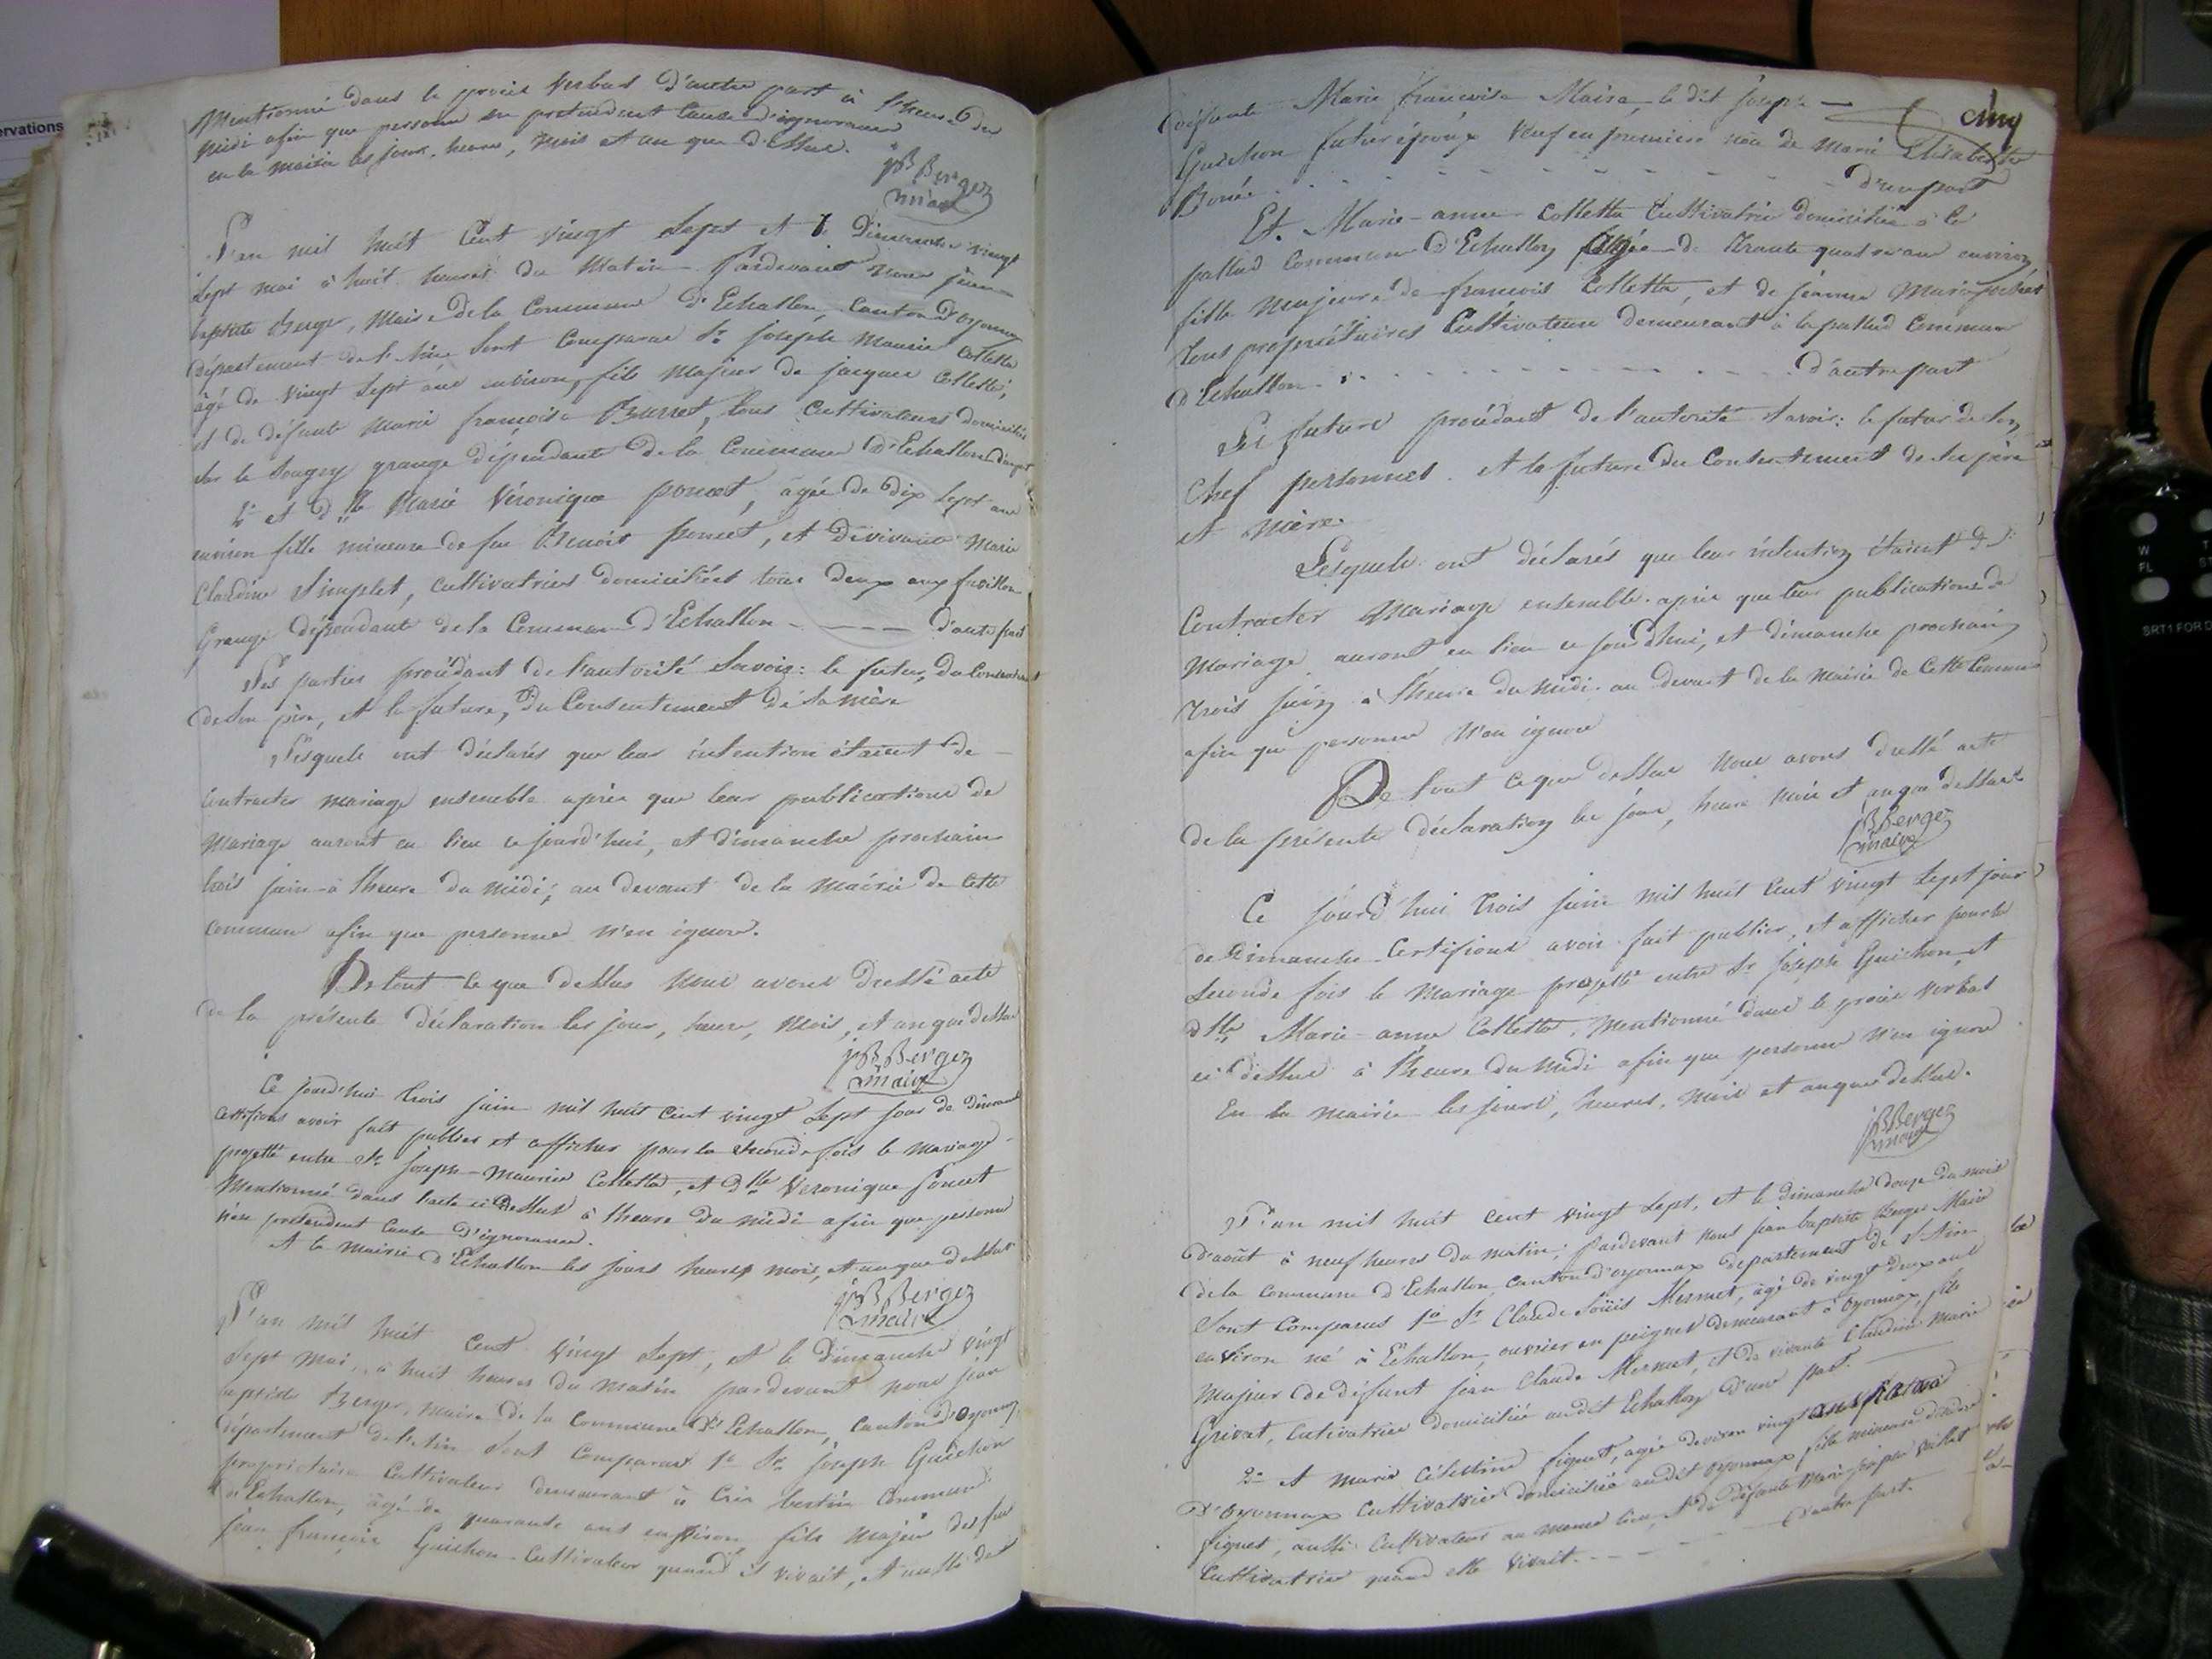 Mentionné dans le procès verbal d'autre part à l'heure du
midi afin que personne en pretendent cause d'ignorance
en la mairie les jour, heure, mois et an que dessus.
JB Berger
maire
L'an mil huit Cent vingt sept et le Dimanche vingt
sept mai à huit heures du Matin Pardevant nous jean
baptiste Berger, Maire de la Commune d'Echallon, Canton d'oyonnax
département de l'Ain sont Comparus Sr joseph Maurice Colletta
âgé de vingt sept ans environ, fils Majeur de jacques Colletta,
et de défunte Marie françoise Burret, tous Cultivateurs domiciliés
sur le Sougey grange dépendante de la Commune d'Echallon d'une part
2° et Dlle Marie Véronique poncet, âgée de dix sept ans
environ fille mineure de feu Benoit poncet, et de vivante Marie
Claudine Simplet, cultivatrices domiciliées tous deux aux favillon
Grange dépendante de la Commune d'Echallon - d'autre part
Les parties procédant de l'autorité Savoir: le futur, du Consentement
de son père, et la future, du Consentement de sa mère
Lesquels ont déclarés que leur intention étaient de
Contracter mariage ensemble après que leur publications de
Mariage auront eu lieu ce jourd'hui, et dimanche prochain
trois juin à l'heure du midi; au devant de la Mairie de Cette
commune afin que personne n'en ignore.
De tout ce que dessus nous avons dressé acte
de la présente déclaration les jour, heure, Mois, et an que dessus
JB Berger
maire
Ce jourd'hui trois juin mil huit Cent vingt sept jour de Dimanche
Certifions avoir fait publier et afficher pour la seconde fois le mariage
projetté entre Sr joseph-Maurice Colletta, et Dlle Veronique Poncet
Mentionné dans l'acte ci Dessus à l'heure du midi afin que personne
n'en pretendent cause d'ignorance.
A la Mairie d'Echallon les jours heures mois, et an que dessus
JB Berger
maire
L'an mil huit Cent Vingt Sept, et le Dimanche vingt
Sept Mai, à huit heures du matin pardevant nous jean
baptiste Berger, maire de la Commune d'Echallon, canton d'Oyonnax
département de l'Ain sont Comparus 1° Sr joseph Guichon
proprietaire Cultivateur demeurant à Crêt bertin Commune
d'Echallon, âgé de quarante ans environ, fils majeur de feu
jean françois Guichon Cultivateur quand il vivait, et aussi de
cinq
défunte Marie françoise Maire, le dit joseph
Guichon futur époux veuf en premiere noce de Marie Elisabeth
Bonée d'une part
Et Marie-anne Colletta Cultivatrice domiciliée à la
pallud Commune d'Echallon agée de trente quatre ans environ
fille majeure de françois Colletta, et de jeanne Marie pochet
tous propriétaires Cultivateurs demeurant à la pallud Commune
d'Echallon d'autre part
Les futurs procédant de l'autorité Savoir: le futur de son
Chef personnel et la future du Consentement de ses père
et mère.
Lesquels ont déclarés que leur intention étaient de
Contracter Mariage ensemble après que leur publications de
Mariage auront eu lieu ce jourd'hui, et dimanche prochain
trois juin à l'heure du midi au devant de la Mairie de Cette Commune
afin que personne n'en ignore
De tout ce que dessus nous avons dressé acte
de la présente déclaration les jour, heure mois et an que dessus
JB Berger
maire
Ce jourd'hui trois juin mil huit Cent vingt sept jour
de Dimanche Certifions avoir fait publier, et afficher pour la
seconde fois le Mariage projetté entre Sr joseph Guichon, et
dlle Marie-anne Colletta, Mentionné dans le procès verbal
ci dessus à l'heure du midi afin que personne n'en ignore
En la mairie les jours, heures, mois et an que dessus.
JB Berger
maire
L'an mil huit cent vingt sept, et le dimanche douze du mois
d'août à neuf heures du matin; pardevant nous jean baptiste Berger Maire
de la Commune d'Echallon, canton d'oyonnax departement de l'Ain
Sont Comparus 1° Sr Claude Loüis Mermet, âgé de vingt deux ans
environ né à Echallon, ouvrier en peignes demeurant à oyonnax, fils
majeur de défunt jean Claude Mermet, et de vivante Claudine Marie
Grivat, Cultivatrice domiciliée au dit Echallon d'une part.
2° et marie Célestine figuet, agée d'environ vingt ans
d'oyonnax Cultivatrice domiciliée au dit oyonnax fille mineure
figuet, aussi Cultivateur au même lieu, et de défunte Marie
Cultivatrice quand elle vivait. d'autre part.